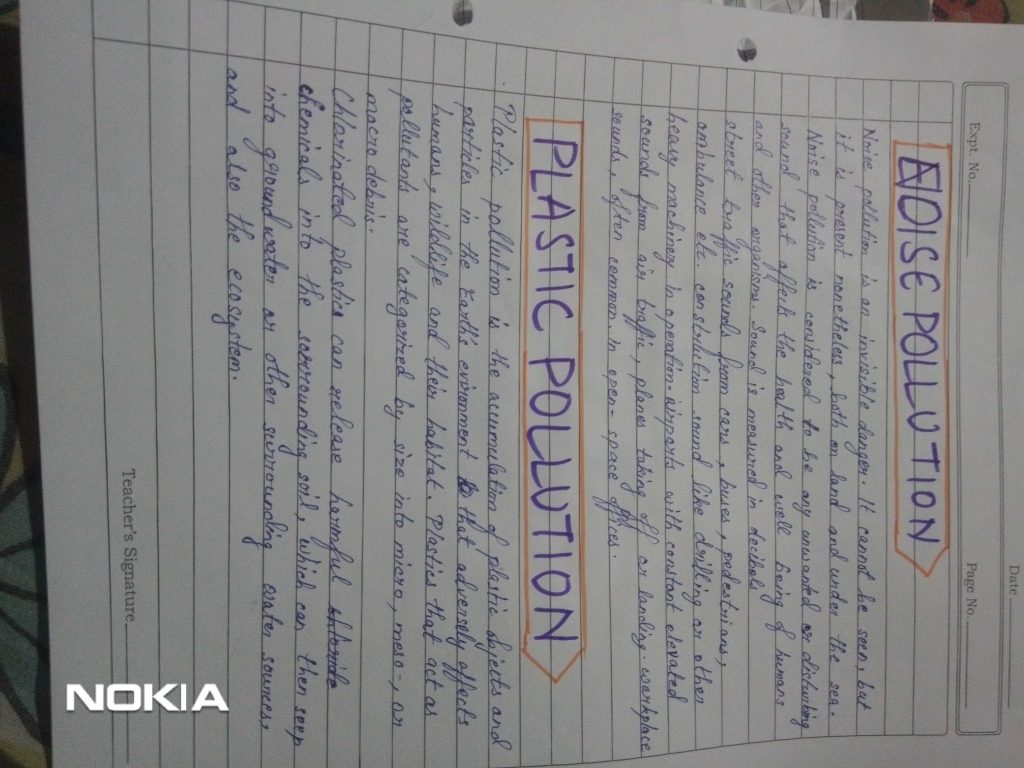 Date
Expt. No.
Page No.
NOISE POLLUTION
Noise pollution is an invisible danger. It cannot be seen, but
it is present nonetheless, both on land and under the sea.
Noise pollution is considered to be any unwanted or disturbing
sound that affects the health and well being of humans
and other organisms. Sound is measured in decibels
street traffic sounds from cars, buses, pedestrians,
ambulance etc construction sound like drilling or other
heavy machinery in operation airports with constant elevated
sounds from air traffic, planes taking off or landing workplace
sounds, often common in open-space offices.
PLASTIC POLLUTION
Plastic pollution is the acumulation of plastic objects and
particles in the Earth's enironment to that adversely affects
humans, wildlife and their habitat. Plastics that act as
pollutants are categorized by size into micro, meso-, or
macro debris.
Chlorinated plastic can release harmful
chemicals into the surrounding soil, which can then seep
into groundwater or other surrounding water sources.
and also the ecosystem.
Teacher's Signature
NOKIA